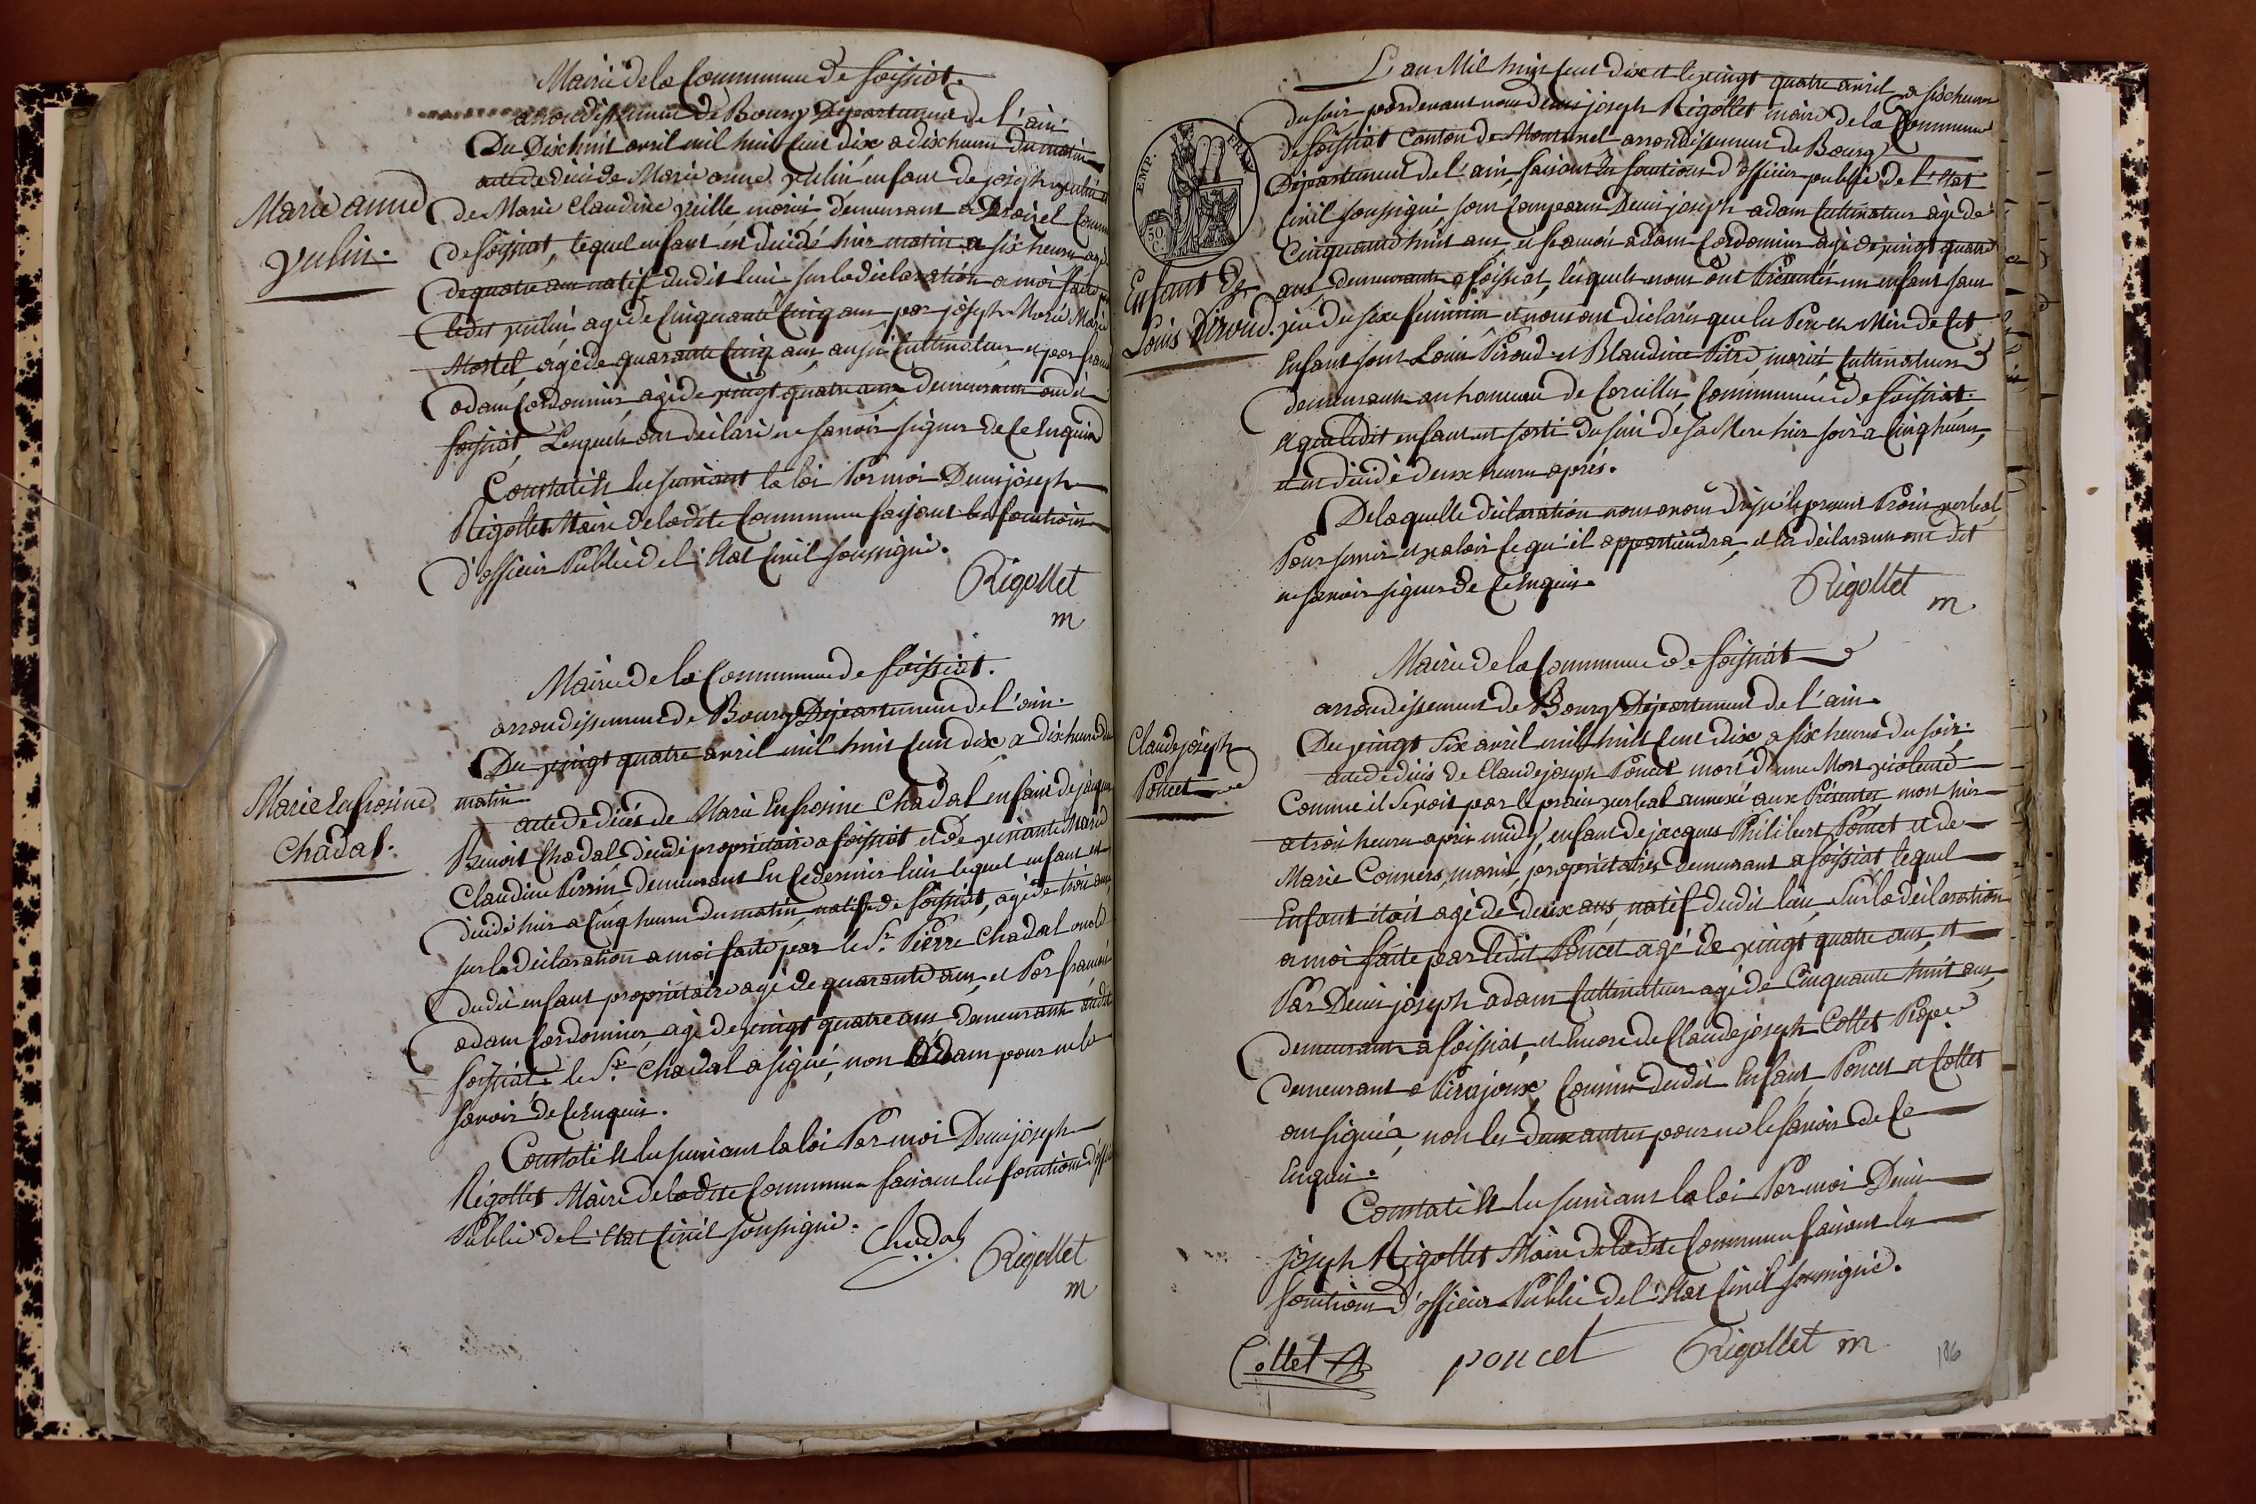 Mairie de la Commune de foissiat.
arrondissement de Bourg Département de l'ain
Du Dix huit avril mil huit Cent dix a dix heures du matin
acte de décè de Marie anne vulin enfant de joseph vulin et
Marie anne
vulin.
de Marie Claudine veille mariés demeurant a
de foissiat, lequel enfant est décédé hier matin a six heures agé
de quatre ans natif dudit lieu sur la déclaration a moi faite par
ledit vulin agé de Cinquante Cinq ans par joseph Marie
Mortel, agé de quarante Cinq ans, aussi Cultivateur et par francois
adam Cordonnier, agé de vingt quatre ans demeurant audit
foissiat, Lesquels ont déclaré ne savoir signer de ce Enquis
Constaté et lu suivant la loi Par moi Denis joseph
Rigollet Maire de ladite Commune faisant les fonctions
d'officier Public de l'état Civil soussigné.
Rigollet
m
Mairie de la Commune de foissiat.
arrondissement de Bourg Département de l'ain.
Du vingt quatre avril mil huit Cent dix a dix heures du
matin
Marie Eufrosine
Chadal.
acte de décés de Marie Eufrosine Chadal enfant de jacques
Benoit Chadal, décédé propriétaire a foissiat et de vivante Marie
Claudine Perrin demeurant en ce dernier lieu lequel enfant est
décédé hier a Cinq heures du matin, natif de foissiat, agé de trois ans
sur la déclaration a moi faite par le Sr. Pierre Chadal oncle
dudit enfant propriétaire agé de quarante ans, et Par francois
adam Cordonnier, agé de vingt quatre ans demeurant audit
foissiat. le Sr. Chadal a signé, non Adam pour ne le
savoir de ce Enquis.
Constaté et lu suivant la loi Par moi Denis joseph
Rigollet Maire de ladite Commune faisant les fonctions d'officier
Public de l'état Civil soussigné.
Chadal
Rigollet
m
L'an Mil huit Cent dix et le vingt quatre avril a six heures
du soir pardevant nous denis joseph Rigollet maire de la Commune
de foissiat Canton de Montrevel arrondissement de Bourg
EMP. FRAN.
50
C.
Département de l'ain, faisant les fonctions d'officier public de l'état
Civil soussigné sont Comparus Denis joseph adam Cultivateur agé de
Cinquante huit ans, et francois adam Cordonnier agé de vingt quatre
Enfant de
Louis Piroud.
ans demeurants a foissiat, lesquels nous ont Présentés un enfant sans
vie du sexe feminin et nous ont déclarés que les Pere et Mère de Cet
Enfant sont Louis Piroud et Blandine Pitre, mariés, Cultivateurs
demeurants au hameau de Corcelles, Commune de foissiat,
et que ledit enfant est sorti du sein de sa Mere hier soir a Cinq heures,
et est décédé deux heures après.
De laquelle déclaration nous avons dressé le présent Procès verbal
Pour servir et valoir Ce qu'il appartiendra, et les déclarants ont dit
ne savoir signer de ce Enquis.
Rigollet
m.
Mairie de la Commune de foissiat
arrondissement de Bourg Département de l'ain.
Claude joseph
Poncet
Du vingt Six avril mil huit Cent dix a six heures du soir.
acte de décès de Claude joseph Poncet mort d'une Mort violente
Comme il Se voit par le procès verbal annexé aux Présentes, mort hier
a trois heures après midy, enfant de jacques Philibert Poncet et de
Marie Convers, mariés, propriétaires demeurant a foissiat, lequel
Enfant étoit agé de deux ans, natif dudit lieu, sur la déclaration
a moi faite par ledit Poncet agé de vingt quatre ans, et
Par Denis joseph adam Cultivateur agé de Cinquante huit ans,
demeurants a foissiat, et encore de Claude joseph Collet Prop.re
demeurant a Pirajoux, Cousin dudit Enfant, Poncet et Collet
ont signés, non les deux autres pour ne le savoir de Ce
Enquis.
Constaté et lu suivant la loi Par moi Denis
joseph Rigollet Maire de ladite Commune faisant les
fonctions d'officier Public de l'état Civil soussigné.
Collet
poncet
Rigollet m
186